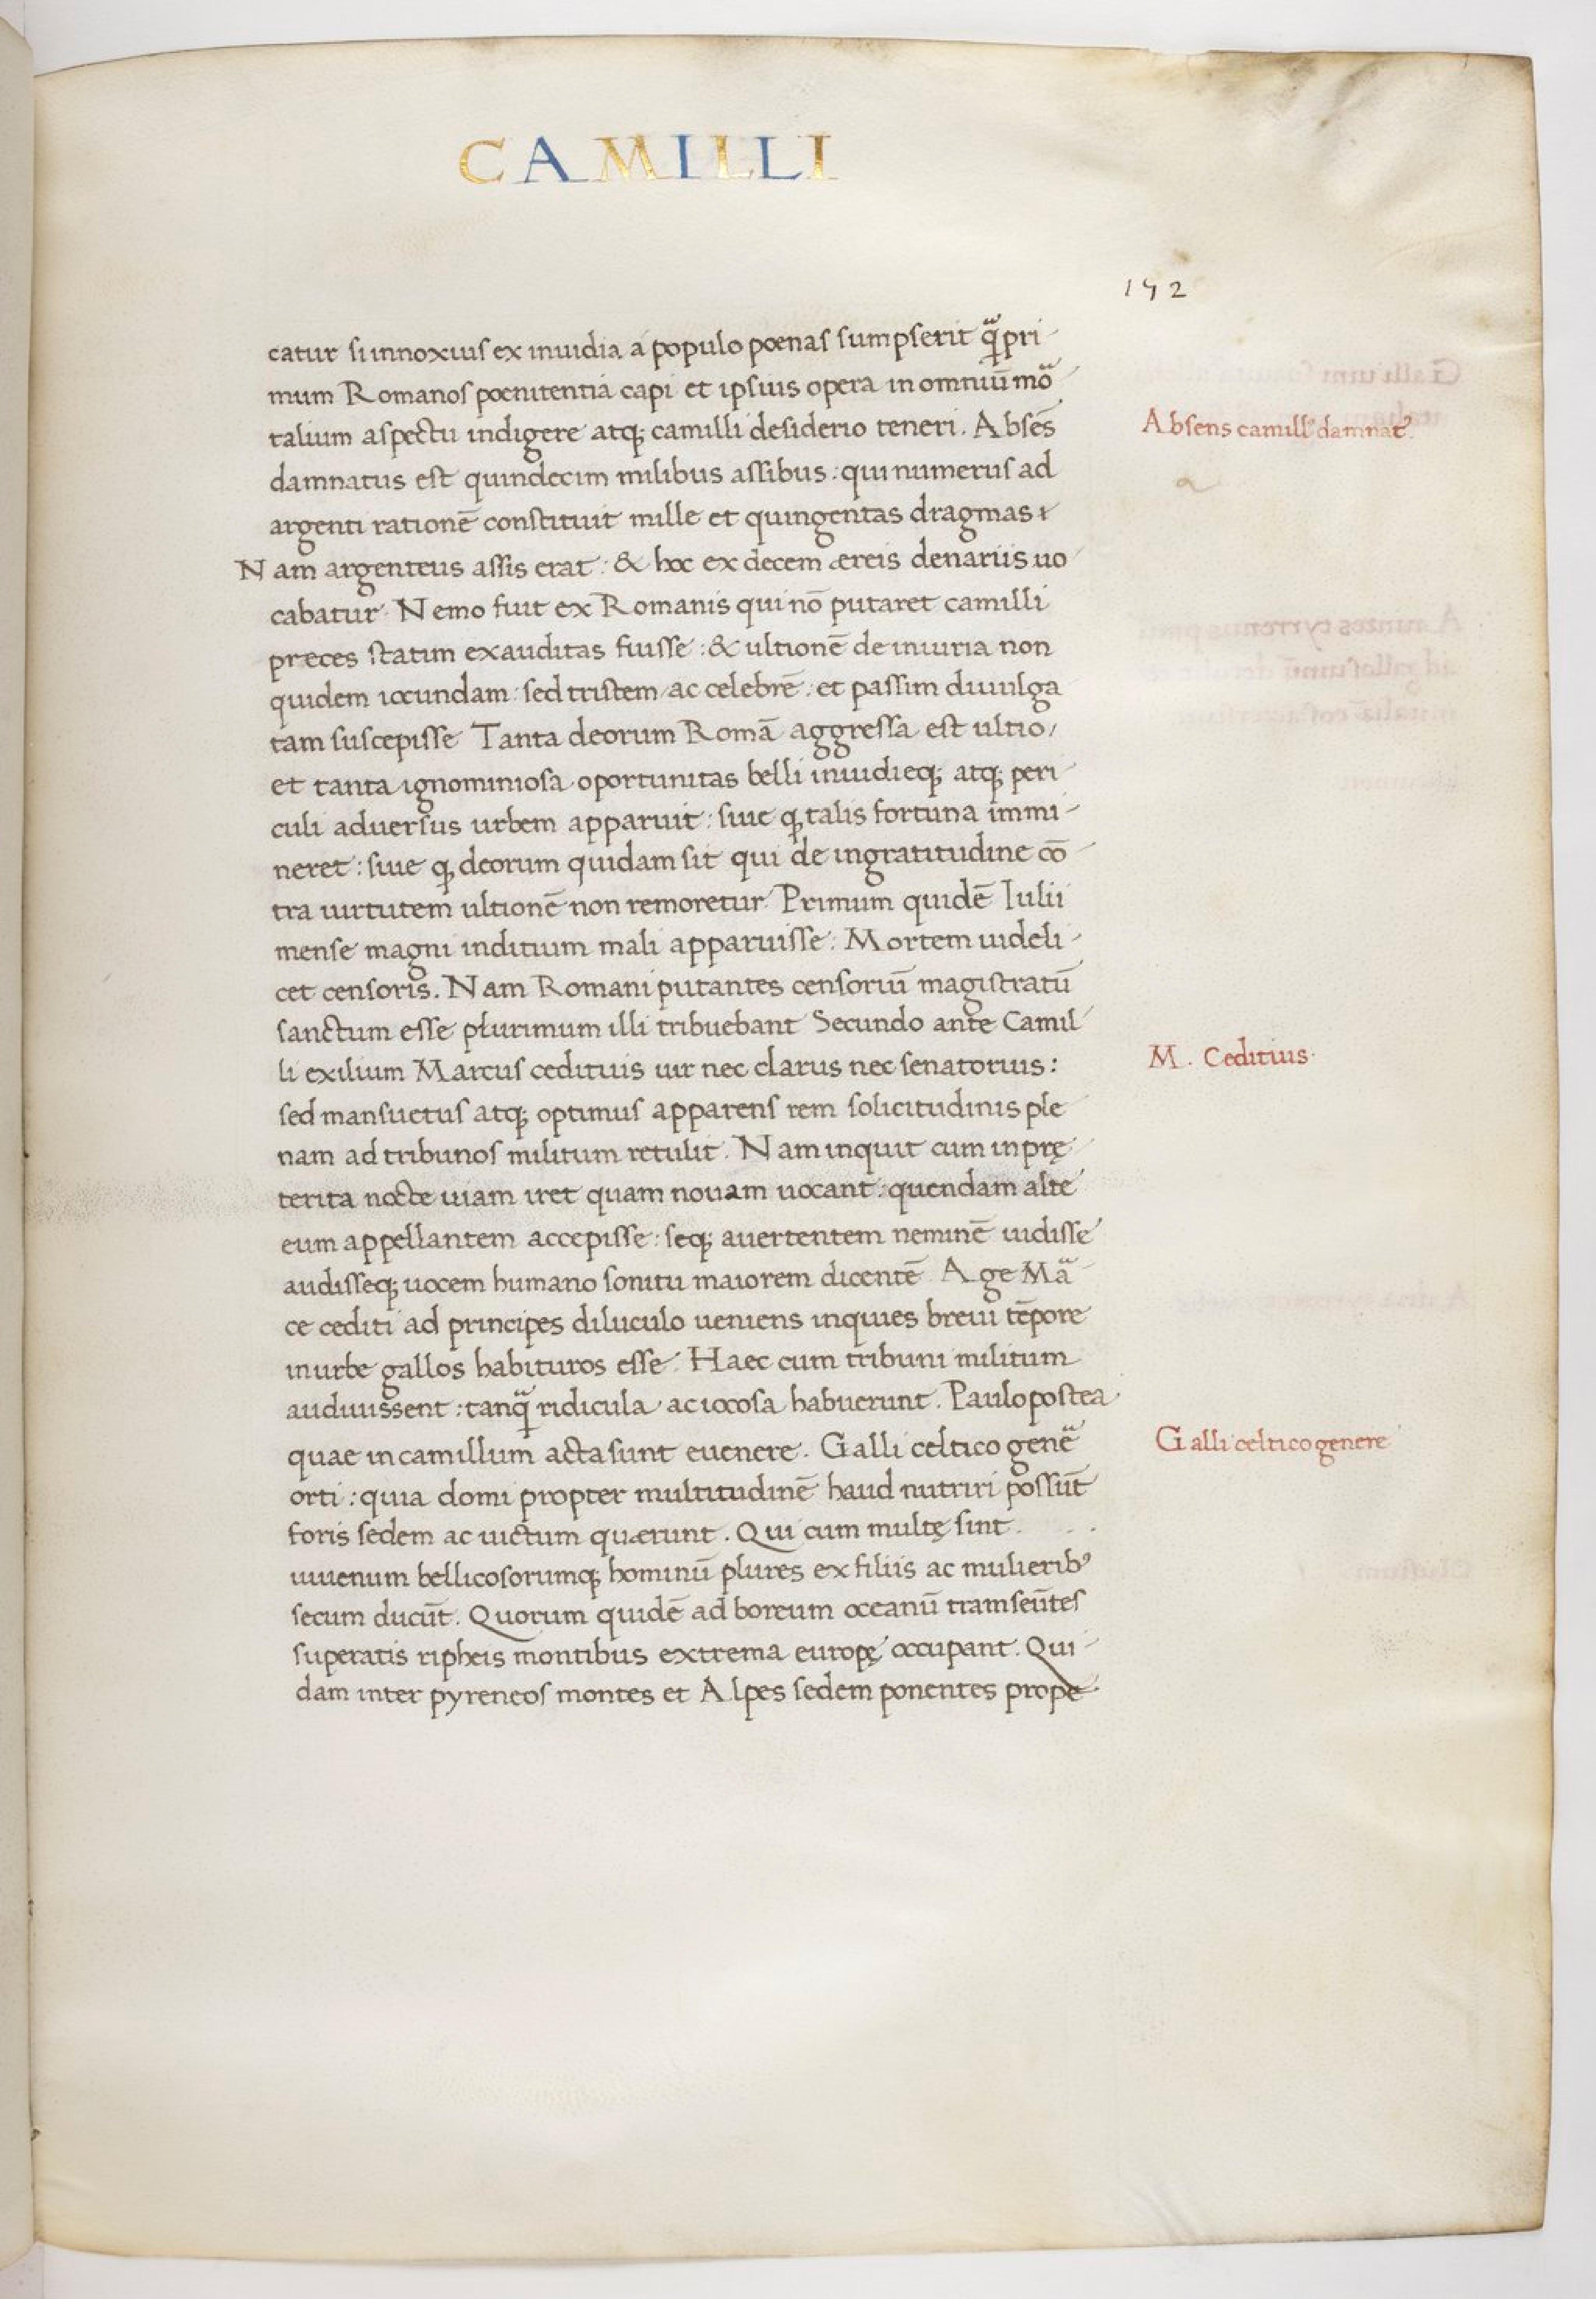 CAMILLI
192
catur si innoxius ex inuidia a populo poenas sumpserit q̃pri-
mum Romanos poenitentia capi et ipsius opera in omniū mõ
talium aspectu indigere atq; camilli desiderio teneri. Absēs
Absens camill⁹ damnat᷒.
damnatus est quindecim milibus assibus: qui numerus ad
argenti rationē constituit mille et quingentas dragmas
Nam argenteus assis erat: & hoc ex decem æreis denariis uo
cabatur. Nemo fuit ex Romanis qui nō putaret camilli
preces statim exauditas fuisse: & ultionē de iniuria non
quidem iocundam: sed tristem ac celebrē: et passim diuulga
tam suscepisse Tanta deorum Romā aggressa est ultio/
et tanta ignominiosa oportunitas belli inuidieq; atq; peri-
culi aduersus urbem apparuit: siue q talis fortuna immi-
neret: siue q deorum quidam sit qui de ingratitudine cō
tra uirtutem ultionē non remoretur. Primum quidē Iulii
mense magni inditium mali apparuisse: Mortem uideli-
cet censoris. Nam Romani putantes censoriū magistratū
sanctum esse plurimum illi tribuebant Secundo ante Camil
li exilium Marcus cedituis uir nec clarus nec senatorius:
M. Ceditius.
sed mansuetus atq; optimus apparens rem solicitudinis ple
nam ad tribunos militum retulit. Nam inquit cum in prę
terita nocte uiam iret quam nouam uocant: quendam alte
eum appellantem accepisse: seq; auertentem neminē uidisse
audisseq; uocem humano sonitu maiorem dicentē. Age Mã
ce cediti ad principes diluculo ueniens inquies breui tēpore
in urbe gallos habituros esse. Haec cum tribuni militum
audiuissent: tanq̃ ridicula ac iocosa habuerunt. Paulo postea
quae in camillum acta sunt euenere. Galli celtico genẽ
Galli celtico genere
orti: quia domi propter multitudinē haud nutriri possūt
foris sedem ac uictum quærunt. Qui cum multę sint
iuuenum bellicosorumq; hominū plures ex filiis ac mulierib⁹
secum ducūt. Quorum quidē ad boreum oceanū tramseūtes
superatis ripheis montibus extrema europę occupant. Qui-
dam inter pyreneos montes et Alpes sedem ponentes prope